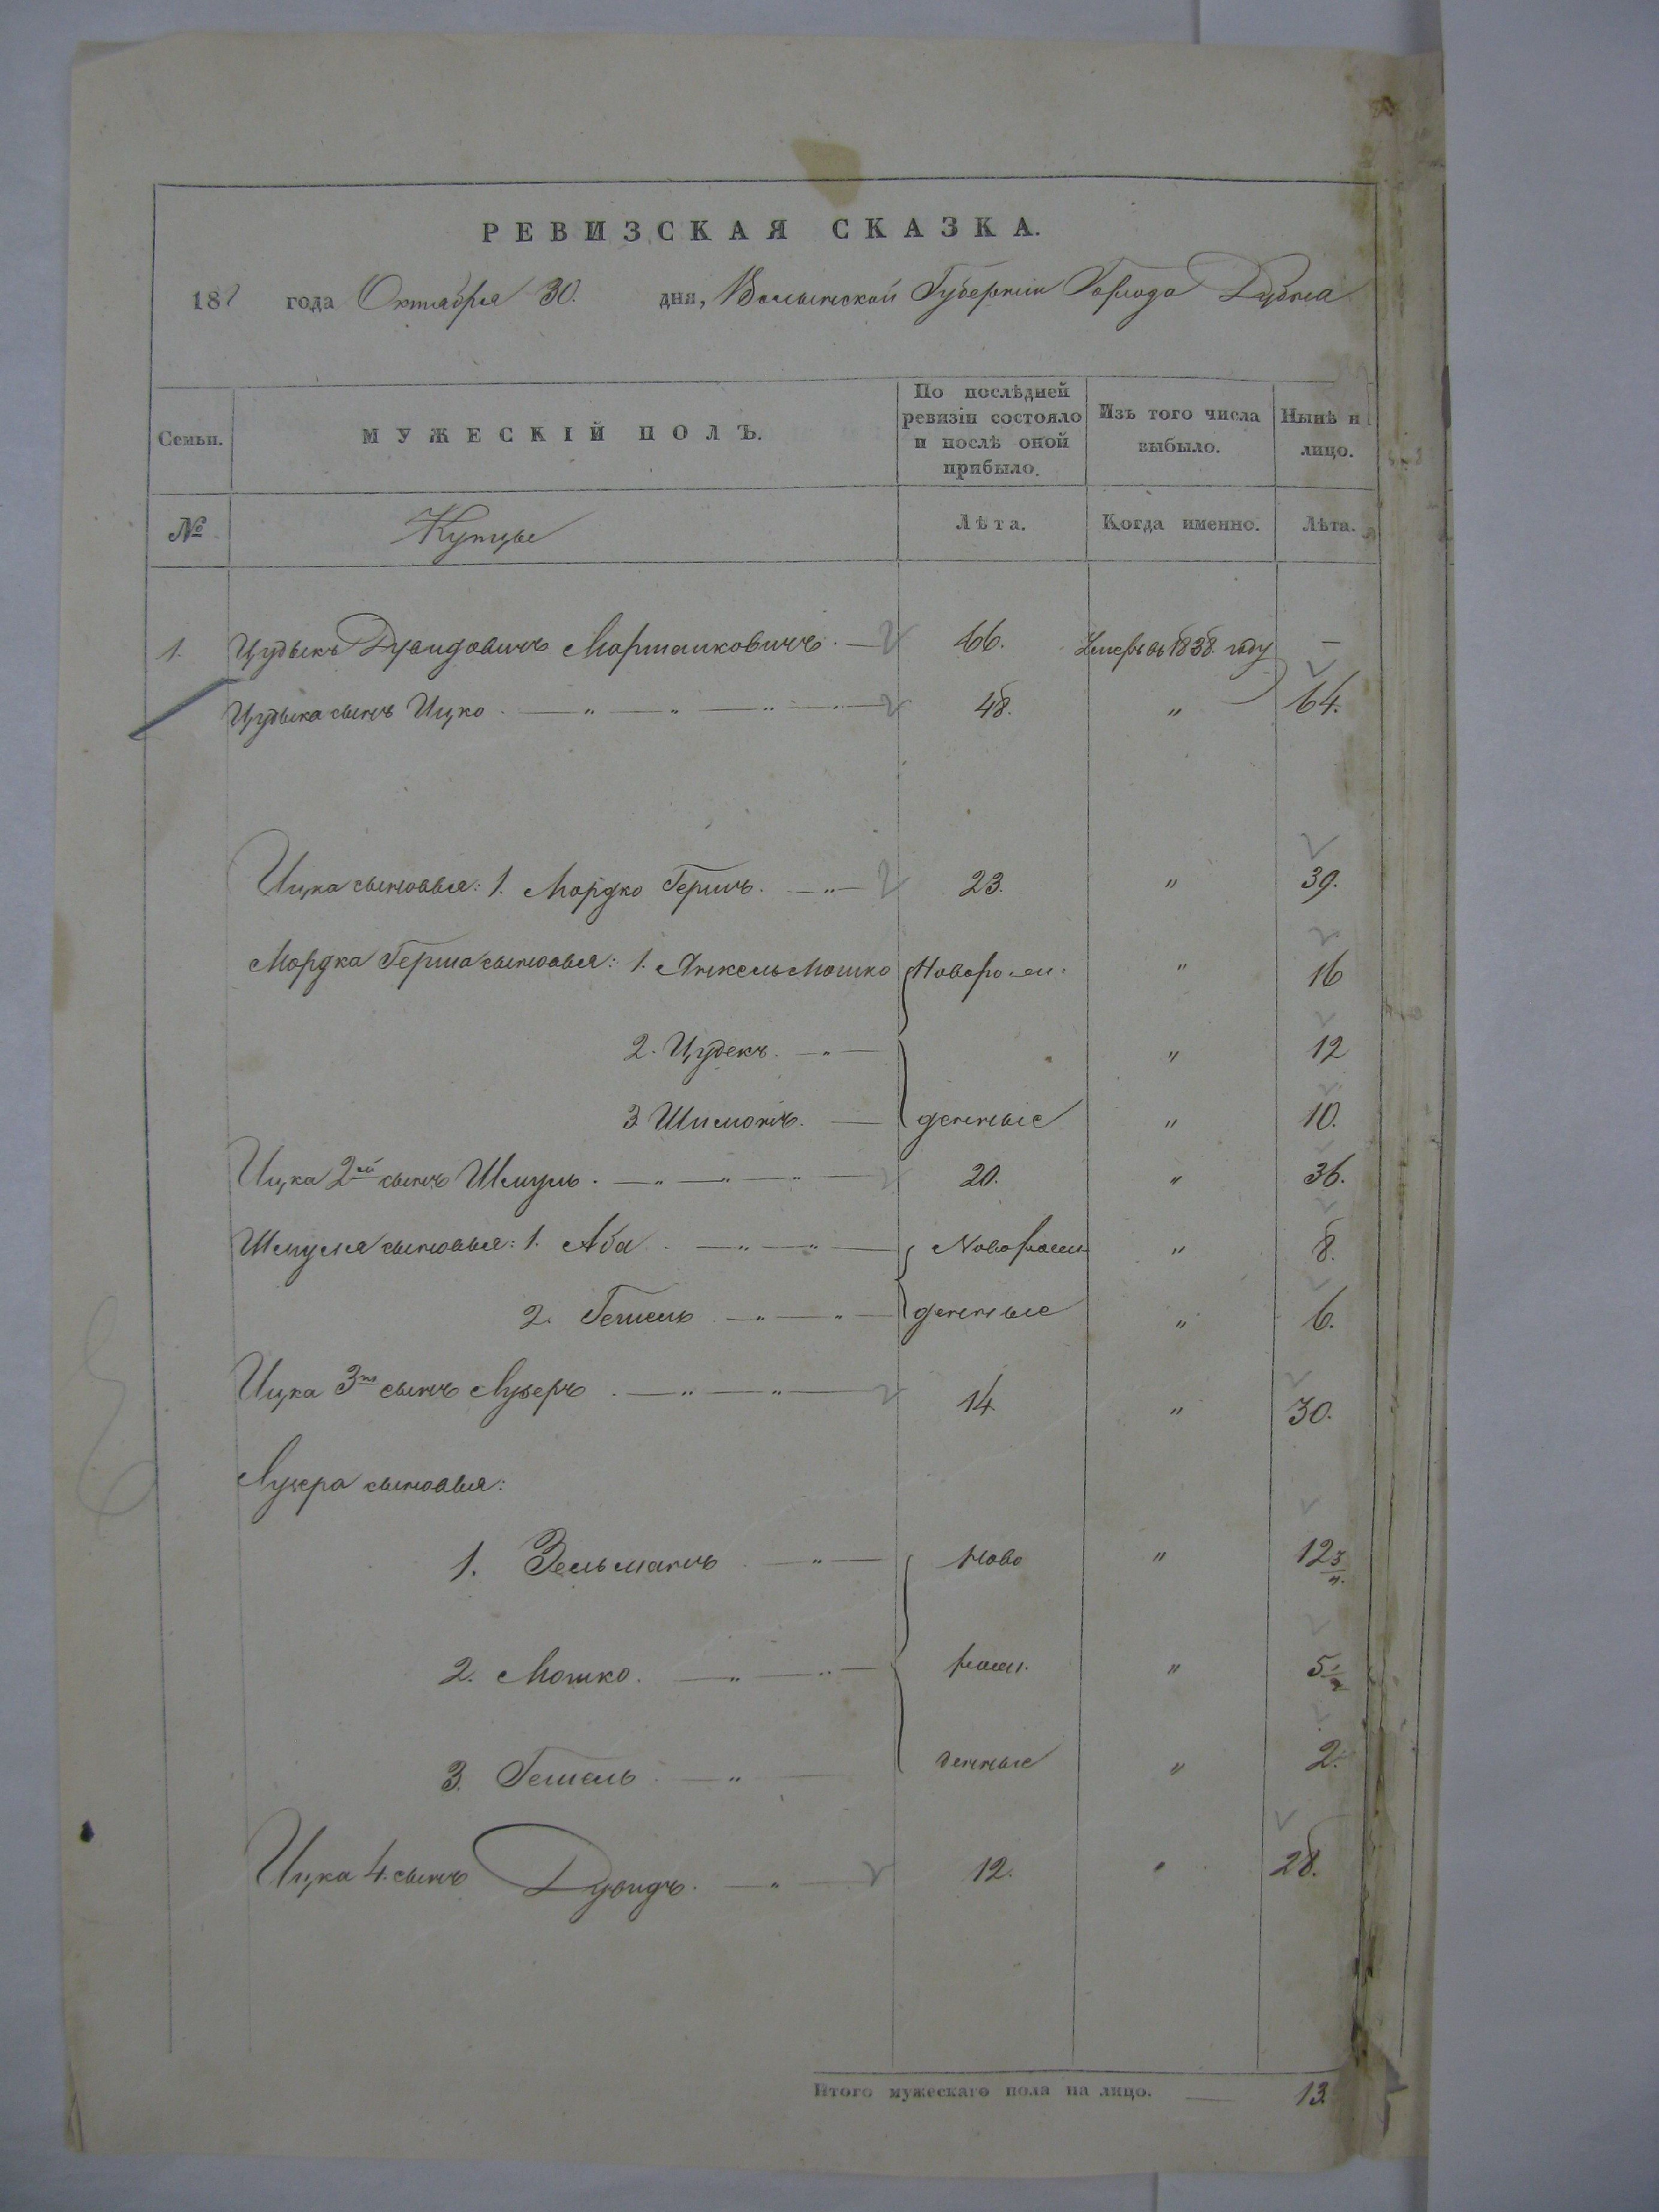 РЕВИЗСКАЯ СКАЗКА.
18 года Октября 30. дня, Волынской Губернии Города Дубна
Семьи. МУЖЕСКІЙ ПОЛЪ. По послѣдней ревизіи состояло и послѣ оной прибыло. Изъ того числа выбыло. Нынѣ н лицо.
№ Купцы Лѣта. Когда именно. Лѣта.
1. Цудыкъ Дувидовичъ 66. Умеръ въ 1838 году —
Цудыка сынъ Ицко 48. " 64.
Ицка сыновья: 1. Мордко Гершъ. 23. " 39.
Мордка Герша сыновья: 1. Янкель Мошко Новорож " 16
2. Цудекъ. " 12
3 Шимонъ. денные " 10.
Ицка 2ой сынъ Шмуль. 20. " 36.
Шмуля сыновья: 1. Аба Новорож " 8.
2. Гешель денные " 6.
Ицка 3й сынъ Лузеръ 14. " 30.
Лузера сыновья:
1. Зельманъ ново " 12 3/4.
2. Мошко. рож. " 5 1/2
3. Гешель денные " 2.
Ицка 4. сынъ Дувидъ. 12. " 28.
Итого мужескаго пола на лицо. — 13.